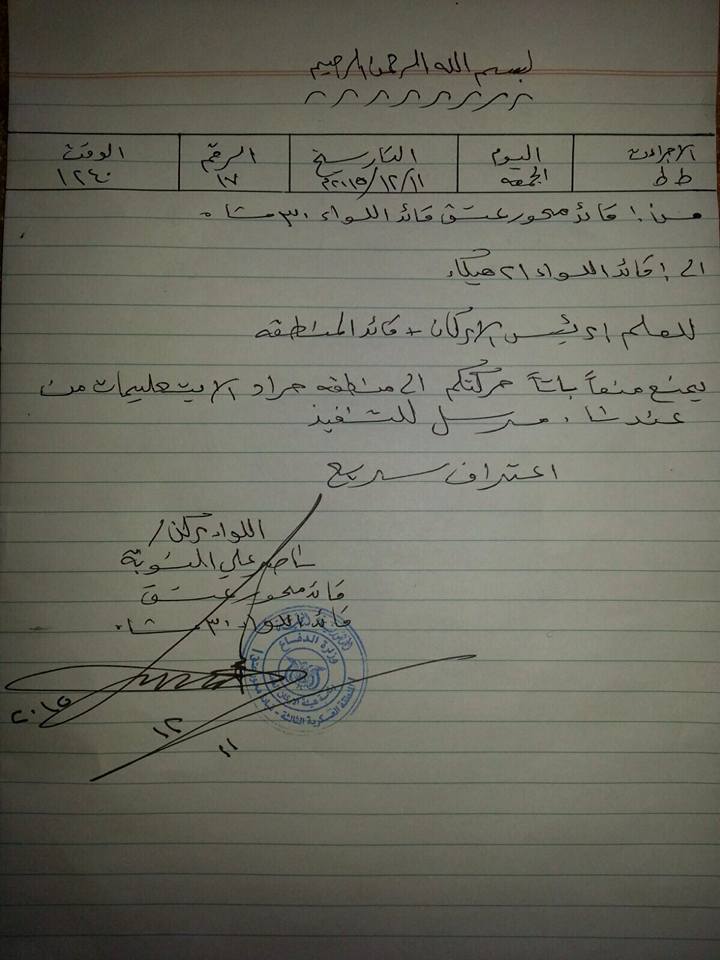 بسم الله الرحمن الرحيم
الاجراءات اليوم التاريخ الرقم الوقت
ط ط الجمعه ٢٠١٥/١٢/١١م ١٧ ١٢٤٠
من / قائد محور عتق قائد اللواء ٣٠ مشاه
الى / قائد اللواء ٢١ ميكا
للعلم / رئيس الاركان + قائد المنطقه
يمنع منعاً باتاً حركتكم الى منطقه جراد الا بتعليمات من
عندنا . مرسل للتنفيذ
اعتراف سريع
اللواء ركن /
ناصر علي النوبة
قائد محور عتق
قائد اللواء ٣٠ مشاه
وزارة الدفاع
هيئة الاركان
المنطقة العسكرية الثالثة
٢٠١٥
١٢
١١